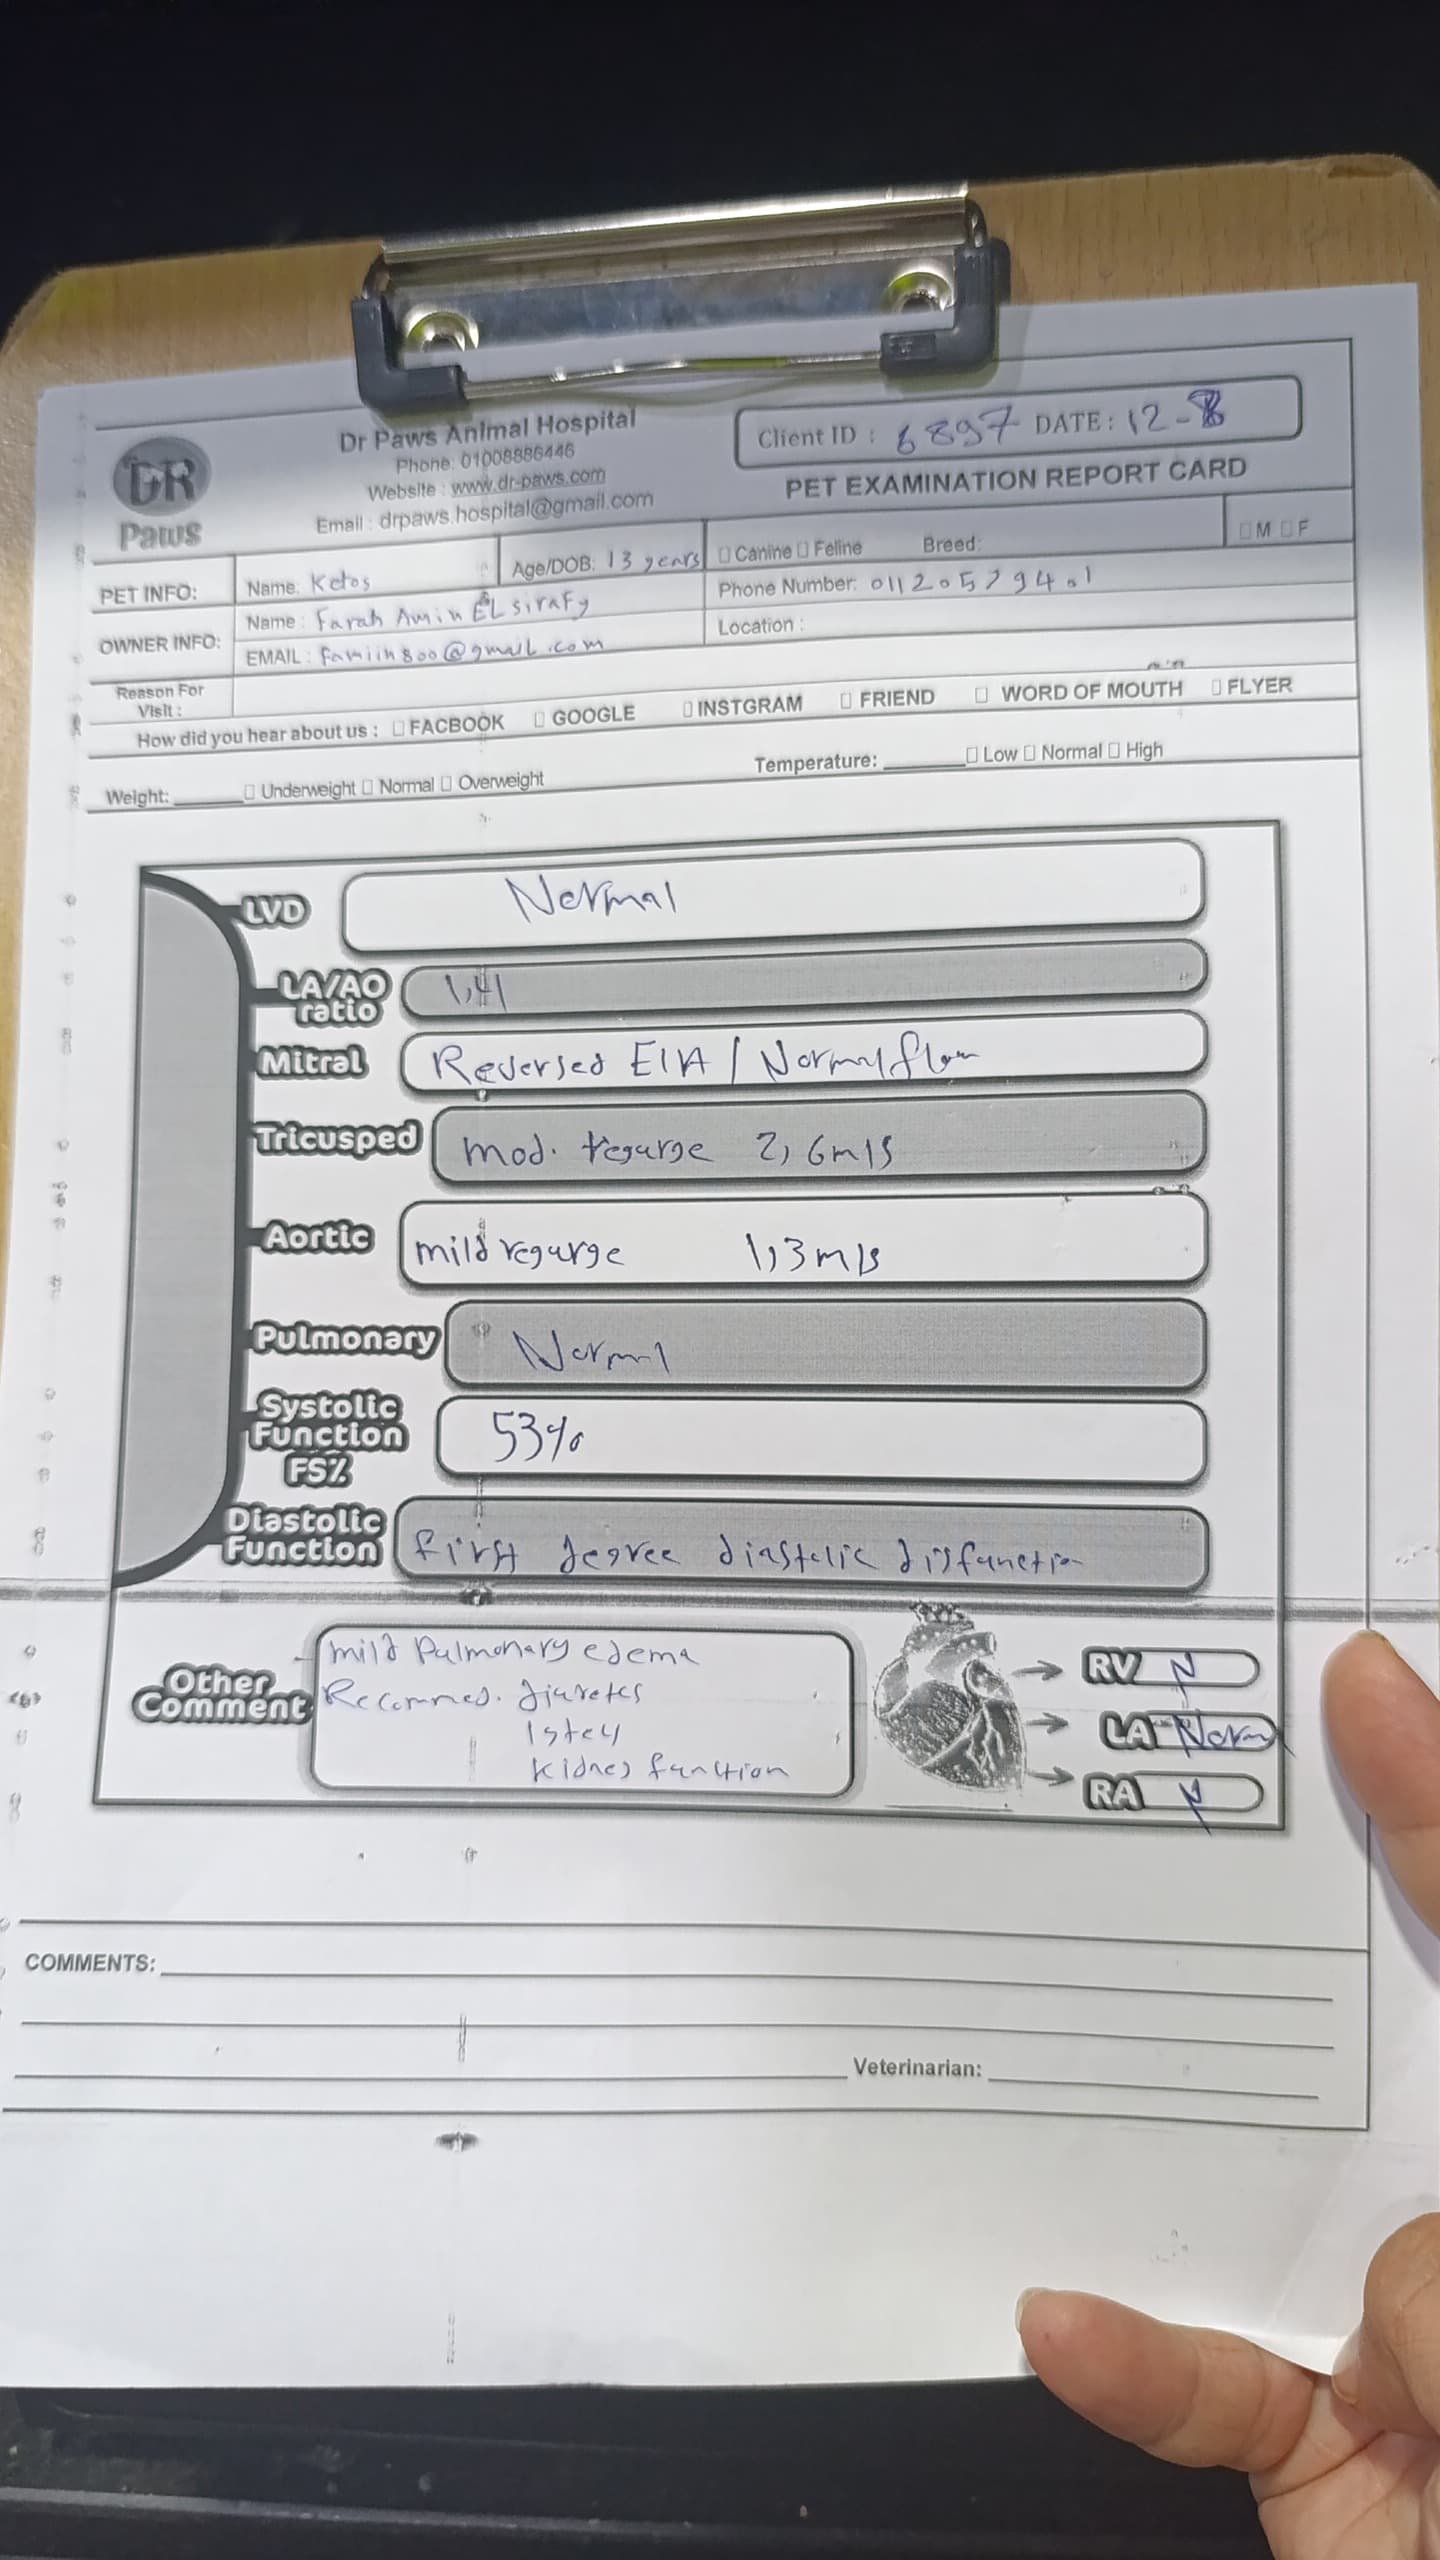 DR
Paws
Dr Paws Animal Hospital
Phone: 01008886446
Website : www.dr-paws.com
Email : drpaws.hospital@gmail.com
Client ID : 6897 DATE : 12-8
PET EXAMINATION REPORT CARD
PET INFO: Name: Ketos Age/DOB: 13 years Canine Feline Breed: M F
OWNER INFO: Name : Farah Amin ELsirafy Phone Number: 01120579401
EMAIL : famiin800@gmail.com Location :
Reason For
Visit :
How did you hear about us : FACBOOK GOOGLE INSTGRAM FRIEND WORD OF MOUTH FLYER
Weight: Underweight Normal Overweight Temperature: Low Normal High
LVD Normal
LA/AO
ratio 1,41
Mitral Reversed E/A / Normal flow
Tricusped mod. regurge 2,6m/s
Aortic mild regurge 1,3m/s
Pulmonary Normal
Systolic
Function
FS% 53%
Diastolic
Function first degree diastolic disfunction
Other
Comment
- mild Pulmonary edema
Recommed. diuretcs
kidney function
RV N
LA Norm
RA N
COMMENTS:
Veterinarian: